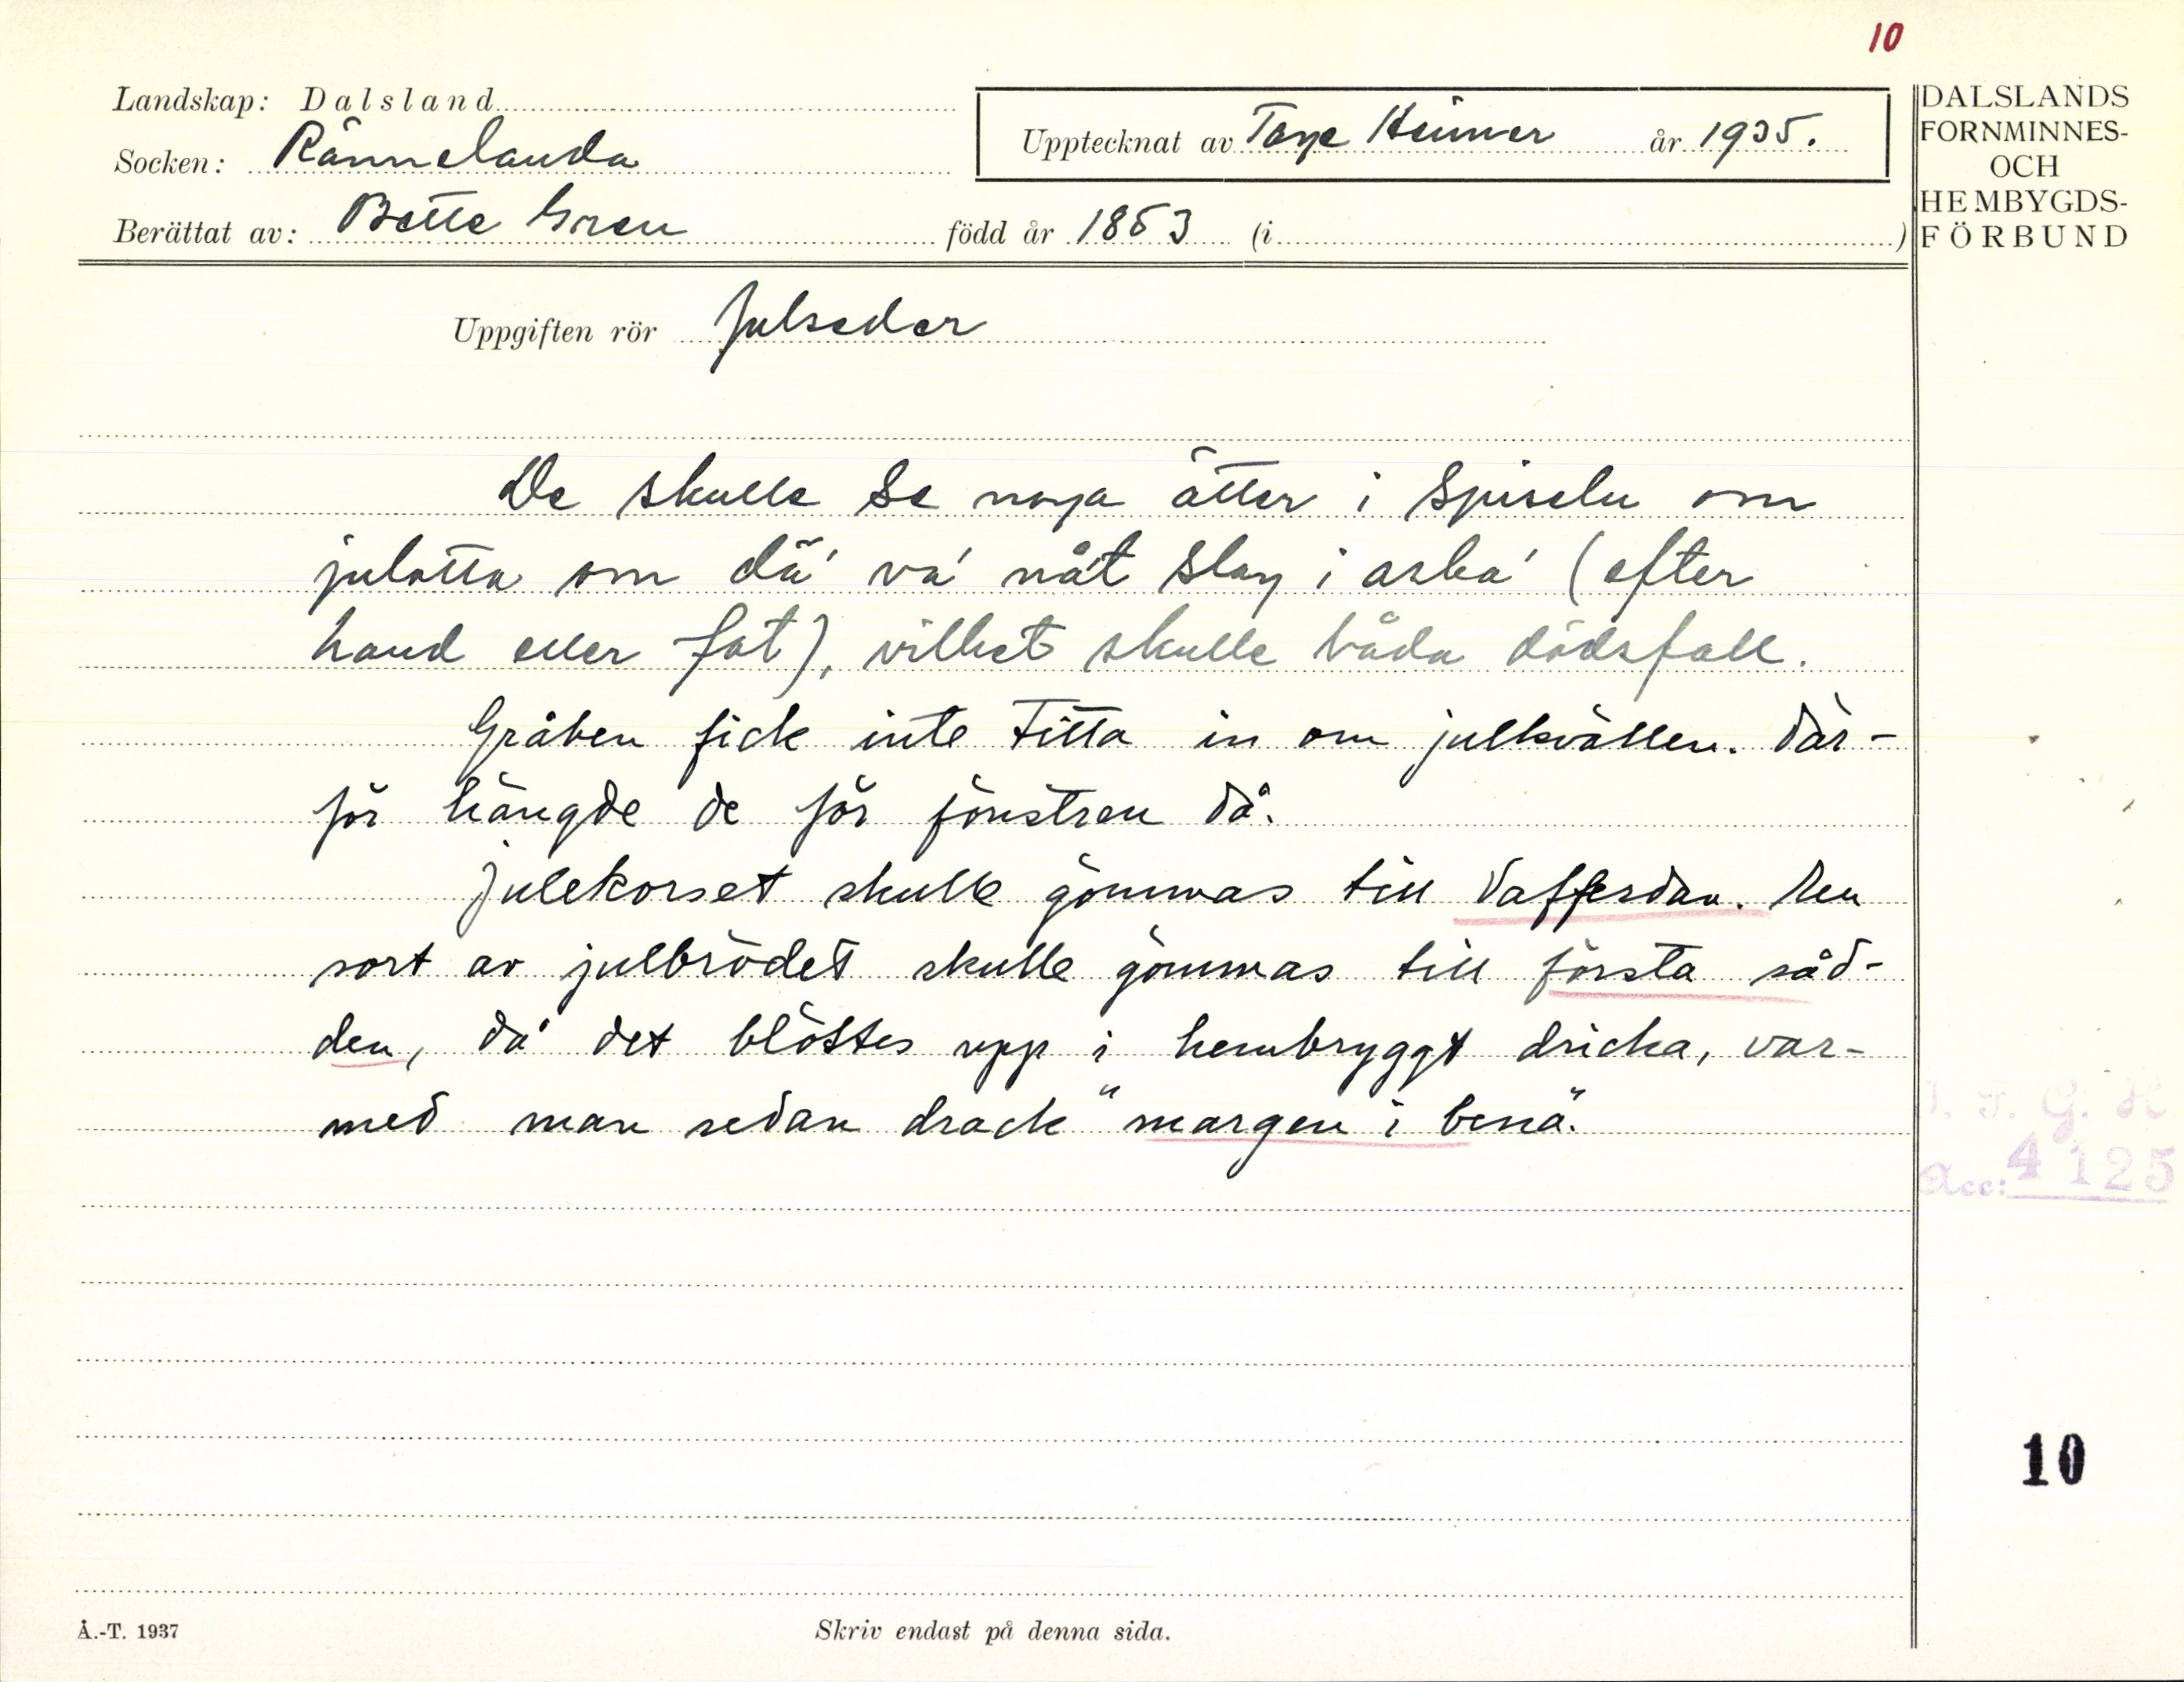 10
Landskap: Dalsland
Socken: Rännelanda
Upptecknat av Tage Heimer år 1935.
Berättat av: Bette Gren född år 1853 (i )
DALSLANDS
FORNMINNES-
OCH
HEMBYGDS-
FÖRBUND
Uppgiften rör Julseder
De skulle se noga ätter i spiseln om
julotta om dä' va' nåt slag i aska' (efter
hand eller fat), vilket skulle båda dödsfall.
Gråben fick inte titta in om julkvällen. Där-
för hängde de för fönstren då.
Julekorset skulle gömmas till Vaffferdan. Den
sort av julbrödet skulle gömmas till första såd-
den, då det blöttes upp i hembryggt dricka, var-
med man sedan drack "margen i benä".
I. F. G. H
Acc: 4125
10
Å.-T. 1937
Skriv endast på denna sida.